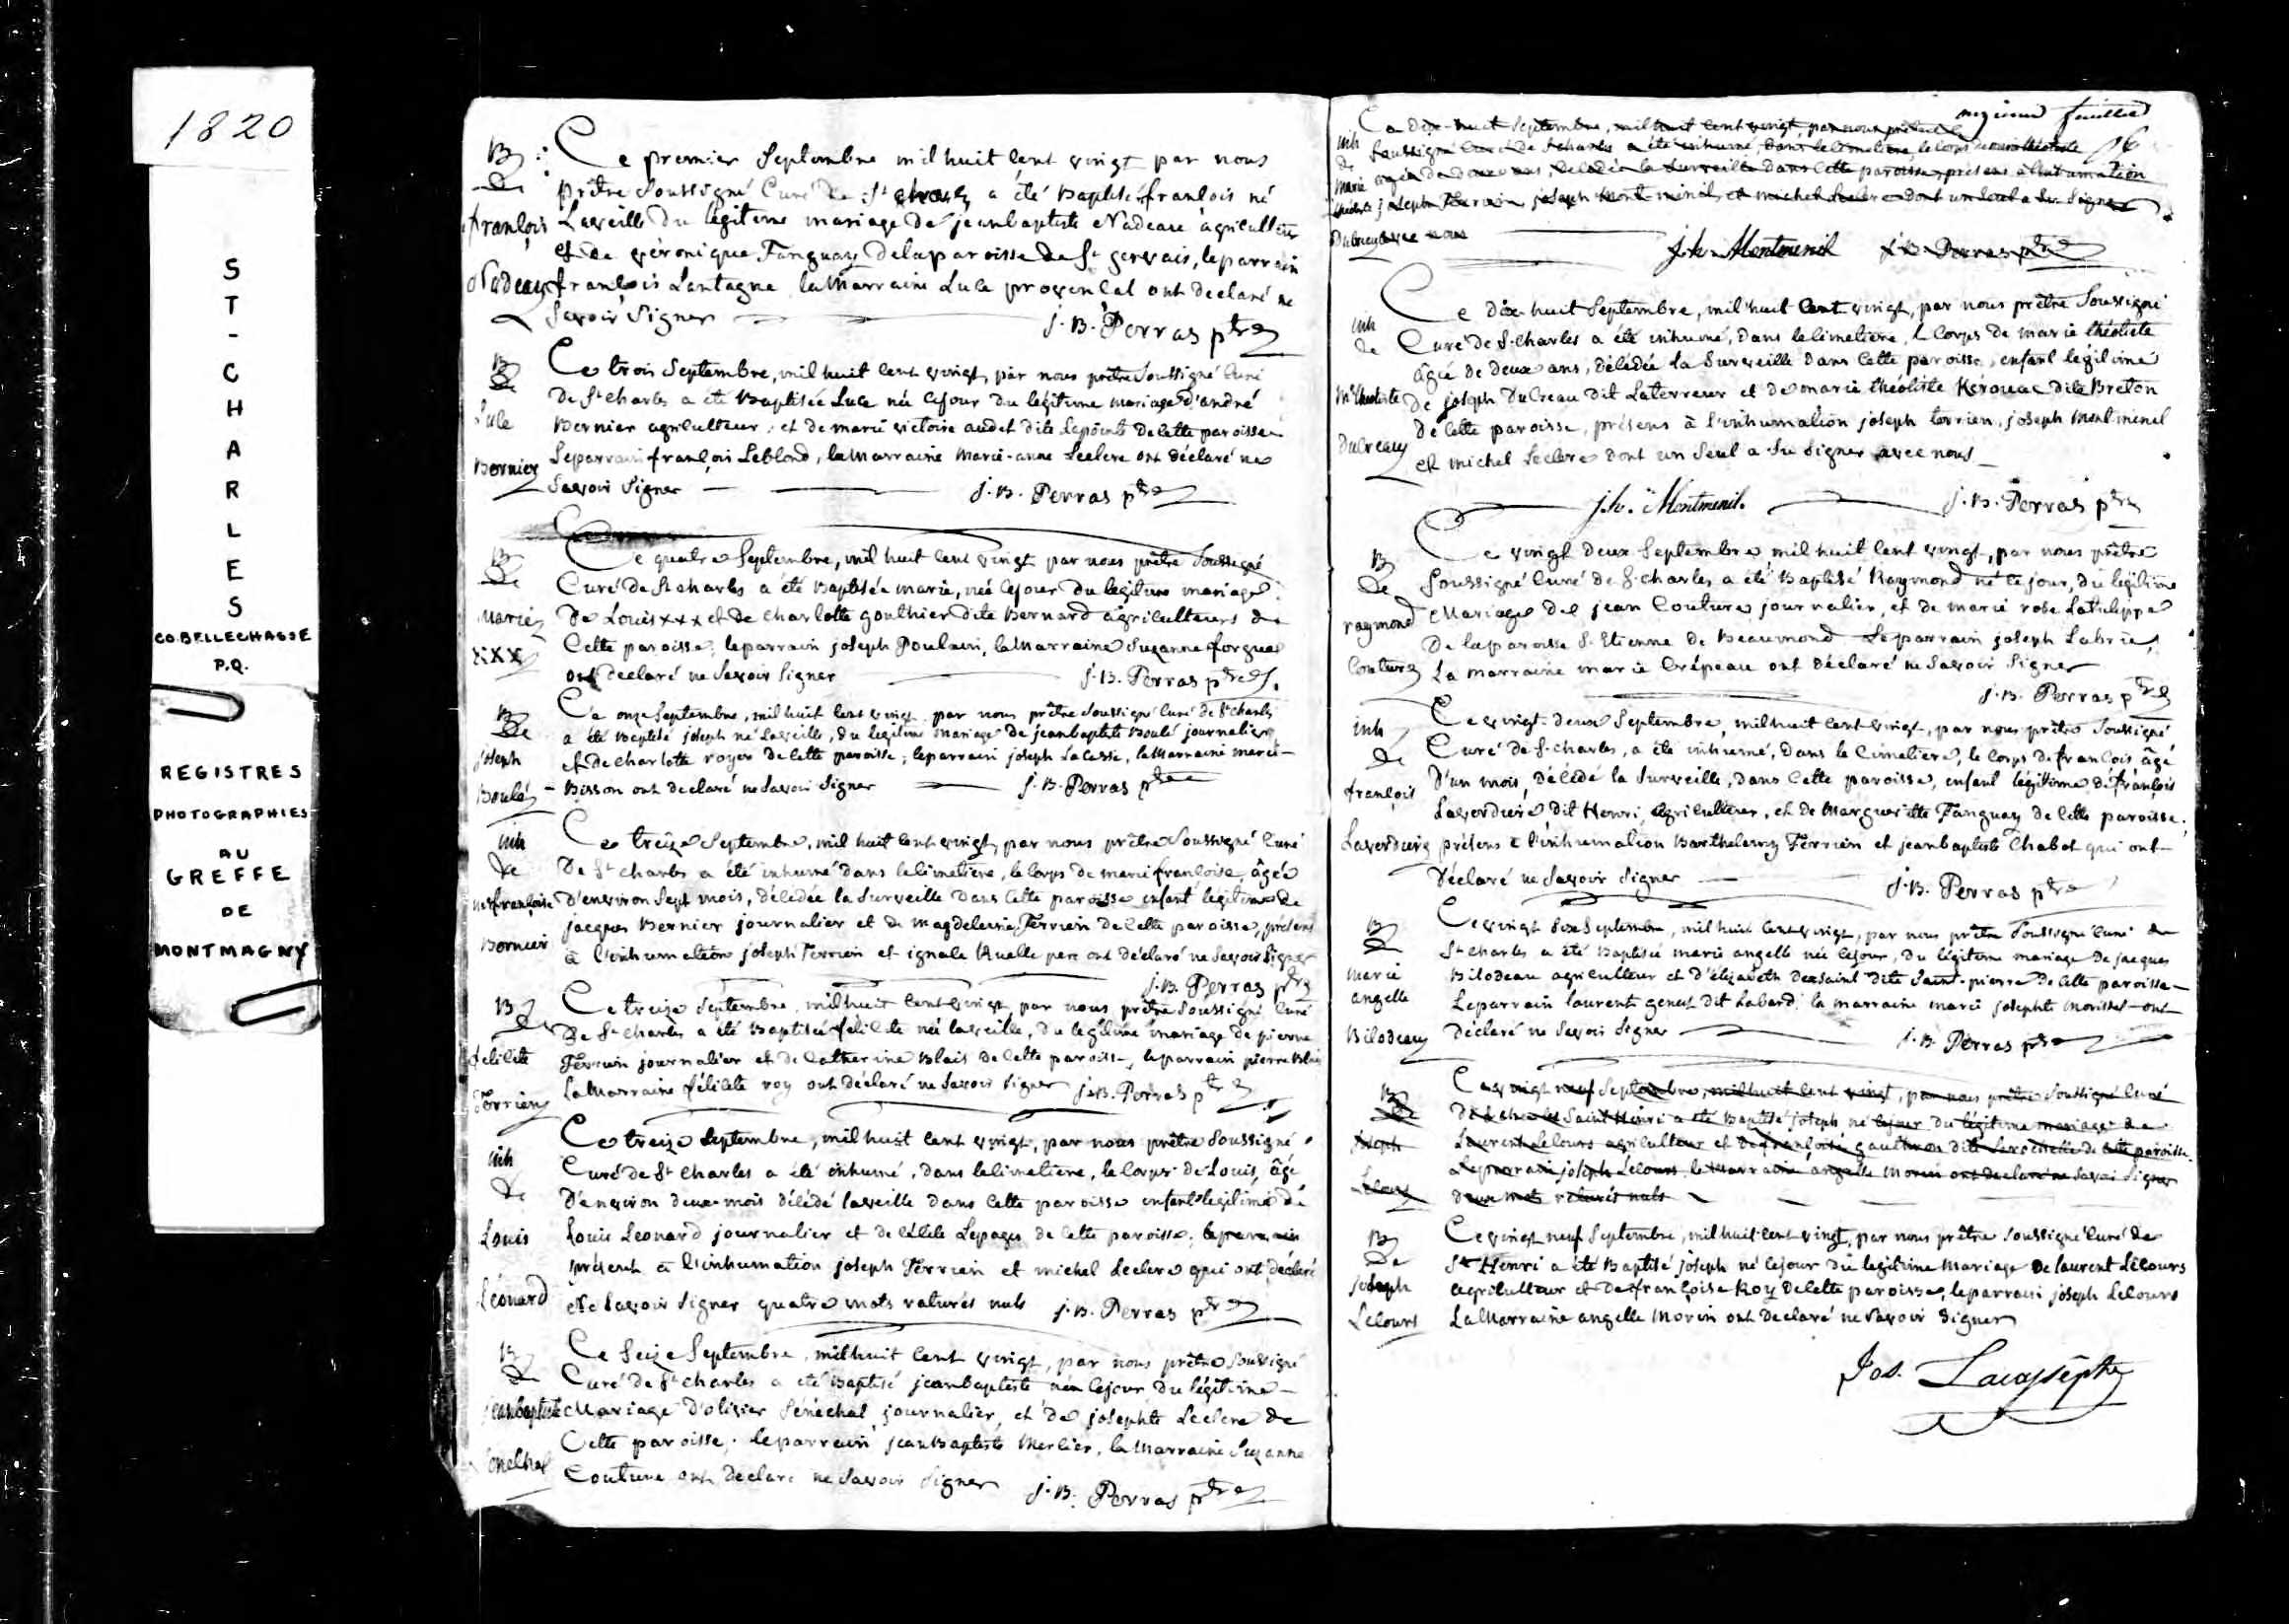 1820
ST-CHARLES
CO.BELLECHASSE
P.Q.
REGISTRES
PHOTOGRAPHIES
AU
GREFFE
DE
MONTMAGNY
B
de
françois
Nadeau
Ce premier Septembre mil huit cent vingt par nous
prêtre Soussigné Curé de St charles a été Baptisé françois né
Laveille du légitime mariage de jeanbaptiste Nadeau agriculteur
et de véronique Tanguay delaparoisse de St gervais, leparrain
françois Lantagne lamarraine Luce provencal ont declaré ne
Savoir Signer
J. B. Perras ptre
B
de
Luce
Bernier
Ce trois Septembre, mil huit cent vingt, par nous prêtre Soussigné Curé
de St charles a été Baptisée Luce née cejour du légitime mariage d'andré
Bernier agriculteur, et de marie victoire audet dite Lapointe de cette paroisse
Leparrain françois Leblond, lamarraine Marie-anne Leclerc ont déclaré ne
Savoir Signer
J. B. Perras ptre
B
de
Marie
XXX
Ce quatre Septembre, mil huit cent vingt par nous prêtre Soussigné
Curé de St charles a été Baptisée marie, née cejour du legitime mariage
de Louis xxx et de charlotte gouthier dite Bernard agriculteurs de
Cette paroisse, leparrain joseph Poulain, lamarraine Suzanne forgue
ont declaré ne Savoir Signer
J. B. Perras ptre
B
de
joseph
Boulé
Ce onze Septembre, mil huit cent vingt par nous prêtre Soussigné Curé de St charles
a été Baptisé joseph né laveille, du legitime mariage de jeanbaptiste Boulé journalier
et de charlotte royer de cette paroisse, leparrain joseph Lacasse, lamarraine marie
Bisson ont declaré ne Savoir Signer
J. B. Perras ptre
inh
de
mie françoise
Bernier
Ce treize Septembre, mil huit cent vingt, par nous prêtre Soussigné Curé
de St charles a été inhumé dans lecimetiere, le corps de marie françoise âgée
d'environ Sept mois, décédée la Surveille dans cette paroisse enfant légitime de
jacques Bernier journalier et de magdeleine Terrien de cette paroisse, présens
à l'inhumation joseph Terrien et ignace Ruelle pere ont déclaré ne Savoir Signer
J. B. Perras ptre
B
de
félicité
Terrien
Ce treize Septembre, mil huit cent vingt, par nous prêtre Soussigné Curé
de St charles a été Baptisée félicité née laveille, du legitime mariage de pierre
Terrien journalier et de catherine Blais de cette paroisse, leparrain pierre Blais
lamarraine félicité roy ont déclaré ne Savoir Signer J. B. Perras ptre
inh
de
Louis
Léonard
Ce treize Septembre, mil huit cent vingt, par nous prêtre Soussigné
Curé de St charles a été inhumé, dans lecimetiere, le corps de Louis, âgé
d'environ deux mois décédé laveille dans cette paroisse enfant légitime de
Louis Leonard journalier et de cécile Lepage de cette paroisse, leparrain
présent à l'inhumation joseph Terrien et michel Leclerc qui ont declaré
ne Savoir Signer quatre mots raturés nuls J. B. Perras ptre
B
de
jeanbaptiste
Senechal
Ce Seize Septembre, mil huit cent vingt, par nous prêtre Soussigné
Curé de St charles a été Baptisé jeanbaptiste né cejour du légitime
Mariage d'olivier Senéchal journalier, et de josephte Leclerc de
Cette paroisse, leparrain jeanBaptiste Mercier, lamarraine Suzanne
Couture ont declaré ne Savoir Signer
J. B. Perras ptre
feuillet
16
inh
de
Marie
théotiste
Dubreuy
Ce dix-huit Septembre, mil huit cent vingt, par nous prêtre
Soussigné Curé de St charles a été inhumé, dans lecimetiere, le corps de marie théotiste
agée de deux ans, décédée la Surveille dans cette paroisse présens à l'inhumation
joseph Terrien, joseph Montminil et michel Leclerc dont un Seul a Su Signer
avec nous
j.h. Montmenil J. B. Perras ptre
inh
de
Me théotiste
Ducreau
Ce dix-huit Septembre, mil huit cent vingt, par nous prêtre Soussigné
Curé de St charles a été inhumé, dans lecimetiere, le Corps de marie théotiste
âgée de deux ans, décédée la Surveille dans cette paroisse, enfant légitime
de joseph Ducreau dit Laterreur et de marie théotiste Kérouac dite Breton
de cette paroisse, présens à l'inhumation joseph terrien, joseph Montminel
et michel Leclerc dont un Seul a Su Signer avec nous
j.h. Montmenil.
J. B. Perras ptre
B
de
raymond
Couture
Ce vingt deux Septembre mil huit cent vingt, par nous prêtre
Soussigné Curé de St charles a été Baptisé Raymond né ce jour, du légitime
Mariage de jean Couture journalier, et de marie rose Latulippe
De laparoisse St Etienne de Beaumond Leparrain joseph Labrie,
La marraine marie Crépeau ont déclaré ne Savoir Signer
J. B. Perras ptre
inh
de
françois
Laverdiere
Ce vingt-deux Septembre, mil huit cent vingt, par nous prêtre Soussigné
Curé de St charles, a été inhumé, dans le Cimetiere, le corps de françois âgé
d'un mois, décédé la Surveille, dans cette paroisse, enfant légitime de françois
Laverdiere dit Henri, agriculteur, et de Margueritte Tanguay de cette paroisse,
présens à l'inhumation Barthelemy Terrien et jeanbaptiste Chabot qui ont
déclaré ne Savoir Signer
J. B. Perras ptre
B
de
Marie
angelle
Bilodeau
Ce vingt Six Septembre, mil huit cent vingt, par nous prêtre Soussigné Curé de
St charles a été Baptisée marie angelle née cejour, du légitime mariage de jacques
Bilodeau agriculteur et d'élizabeth dessaint dite Saint-pierre de cette paroisse
Leparrain laurent genest dit Labard, la marraine marie josephte morisset ont
déclaré ne Savoir Signer
J. B. Perras ptre
B
de
joseph
Lecours
Ce vingt neuf Septembre, mil huit cent vingt, par nous prêtre Soussigné Curé
de St charles Saint Henri a été Baptisé joseph né cejour du légitime mariage de
Laurent Lecours agriculteur et de françoise gautron dite Larochelle de cette paroisse.
Leparrain joseph Lecours la Marraine angelle Morin ont declaré ne Savoir Signer
deux mots raturés nuls
B
de
joseph
Lecours
Ce vingt neuf Septembre, mil huit cent vingt, par nous prêtre Soussigné Curé de
St Henri a été Baptisé joseph né cejour du legitime Mariage de laurent Lecours
agriculteur et de françoise Roy de cette paroisse, leparrain joseph Lecours
LaMarraine angelle Morin ont declaré ne Savoir Signer
Jos.